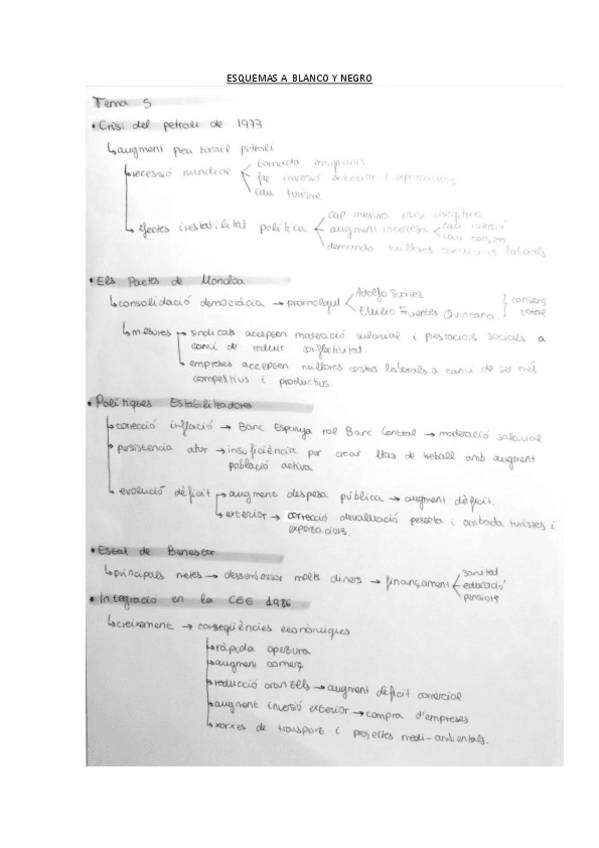 ESQUEMAS A BLANCO Y NEGRO
Tema 5
• Crisi del petroli de 1973
↳ augment preu barril petroli
↳ recessió mundial
tornada emigrants
fre inversió exterior i exportacions
cau turisme
↳ efectes inestabilitat política
cap mesura crisi energètica
augment incertesa
cau inversió
cau consum
demanda millores condicions laborals
• Els Pactes de Moncloa
↳ consolidació democràcia → promogut
Adolfo Suárez
Elulio Fuentes Quintano
consens total
↳ mesures → sindicats accepten moderació salarial i prestacions socials a
canvi de reduir conflictivitat.
↳ empreses accepten millores costos laborals a canvi de ser més
competitius i productius.
• Polítiques Estabilitzadores
↳ correcció inflació → Banc Espanya rol Banc Central → moderació salarial
↳ persistencia atur → insuficiència per crear llocs de treball amb augment
població activa
↳ evolució dèficit → augment despesa pública → augment dèficit.
↳ exterior → correcció devaluació pesseta i arribada turistes i
exportacions.
• Estat de Benestar
↳ principals metes → molts diners → finançament
sanitat
educació
pensions
• Integració en la CEE 1986
↳ creixement → conseqüències econòmiques
↳ ràpida apertura
↳ augment comerç
↳ reducció aranzels → augment dèficit comercial
↳ augment inversió exterior. → compra d'empreses
↳ xarxes de transport i projectes medi-ambientals.